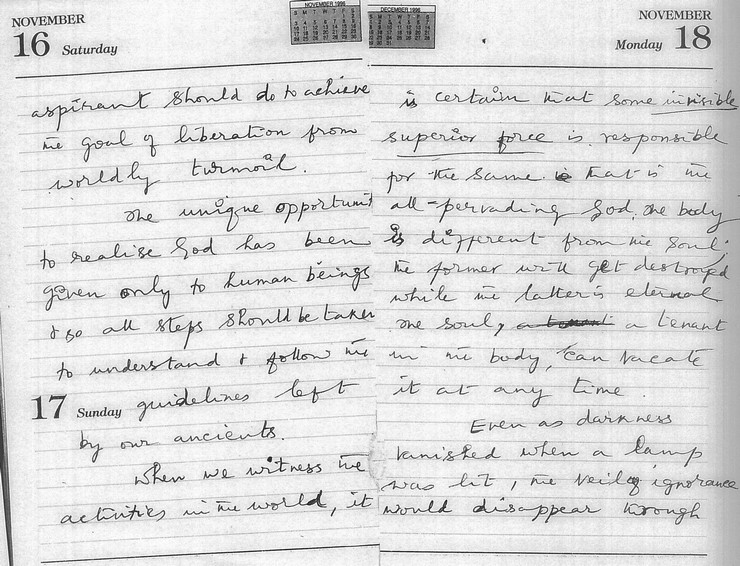 NOVEMBER
16 Saturday
NOVEMBER 1996
aspirant should do to achieve
the goal of liberation from
worldly turmoil.
The unique opportunit
to realise God has been
given only to human beings
& so all steps should be taken
to understand & follow the
17 Sunday guidelines left
by our ancients.
When we witness the
activities in the world, it
DECEMBER 1996
NOVEMBER
Monday 18
is certain that some invisible
superior force is responsible
for the same. that is the
all-pervading God. The body
is different from the soul;
the former will get destroyed
while the latter is eternal
The soul, a tenant
in the body, can vacate
it at any time.
Even as darkness
vanished when a lamp
was lit, the veil of ignorance
would disappear through